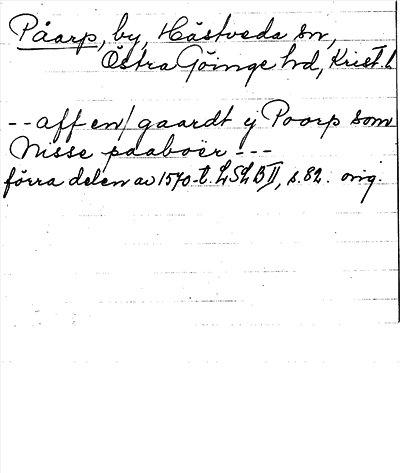 Påarp, by, Hästveda sn,
Östra Göinge hd, Krist. l
-- aff en/ gaardt y Poorp som
Nisse paaboer ---
förra delen av 1570-t. LSLB II, s. 82. orig.